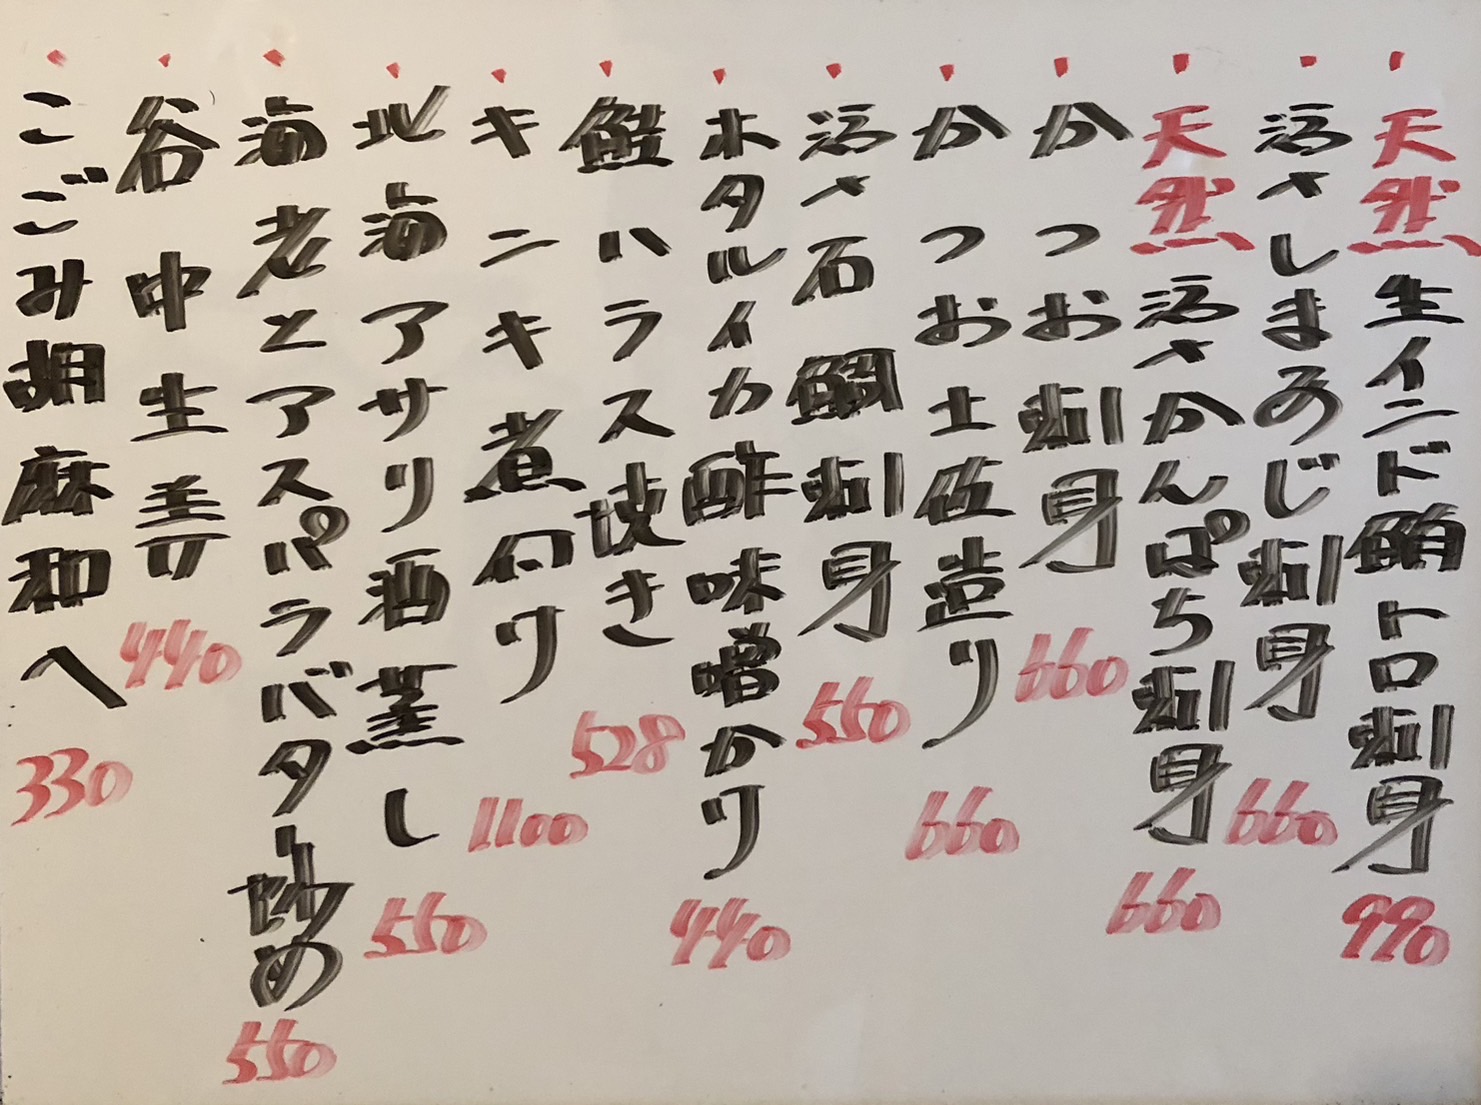 天然生インド鮪トロ刺身 990
活〆しまあじ刺身 660
天然活〆かんぱち刺身 660
かつお刺身 660
かつお土佐造り 660
活〆石鯛刺身 550
ホタルイカ酢味噌かけ 440
鮭ハラス焼き 528
キンキ煮付け 1100
北海アサリ酒蒸し 550
海老とアスパラバター炒め 550
谷中生姜 440
こごみ胡麻和へ 330